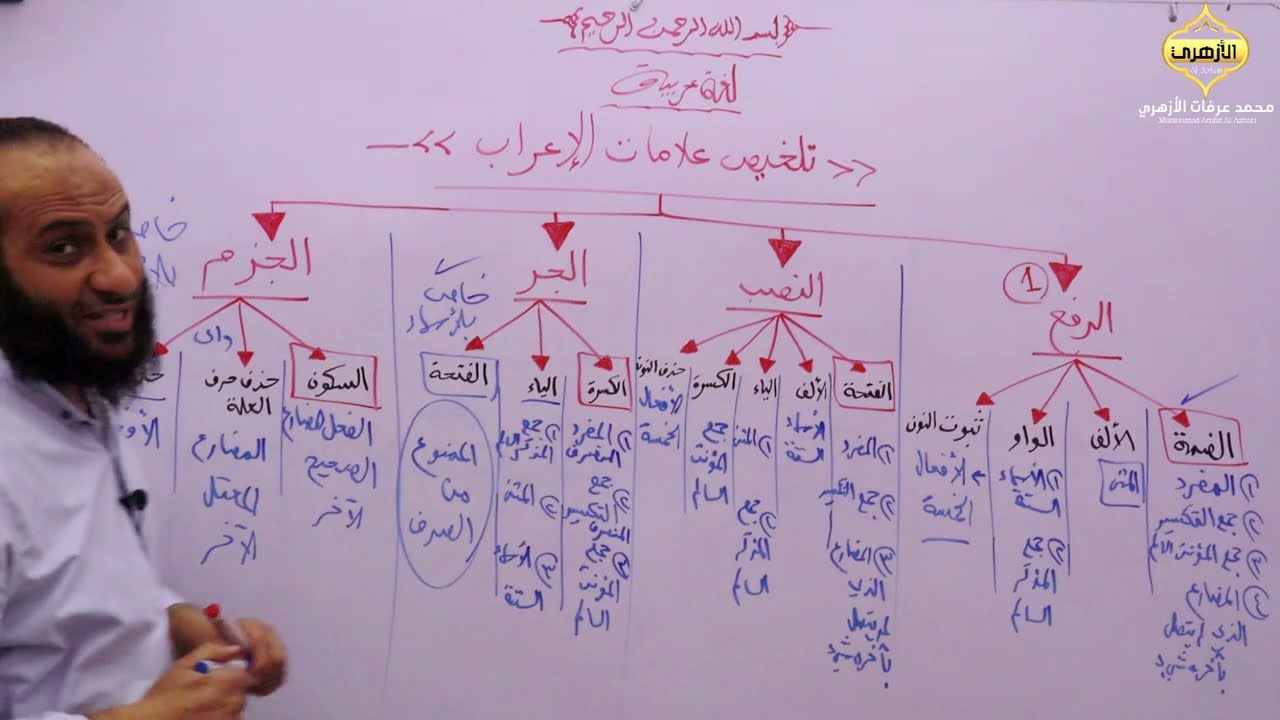 بسم الله الرحمن الرحيم
لغة عربية
<< تلخيص علامات الإعراب >>
الأزهري
Al Azhari
محمد عرفات الأزهري
Muhammad Arafat Al Azhari
① الرفع
الضمة
① المفرد
② جمع التكسير
③ جمع المؤنث السالم
④ المضارع
الذي لم يتصل
بآخره شيء
الألف
المثنى
الواو
① الأسماء
الستة
② جمع
المذكر
السالم
ثبوت النون
الأفعال
الخمسة
النصب
الفتحة
① المفرد
② جمع التكسير
③ المضارع
الذي
لم يتصل
بآخره شيء
الألف
الأسماء
الستة
الياء
① المثنى
② جمع
المذكر
السالم
الكسرة
جمع
المؤنث
السالم
حذف النون
الأفعال
الخمسة
الجر
خاص
بالأسماء
الكسرة
① المفرد
المنصرف
② جمع
التكسير
المنصرف
③ جمع
المؤنث
السالم
الياء
① جمع
المذكر السالم
② المثنى
③ الأسماء
الستة
الفتحة
الممنوع
من
الصرف
الجزم
السكون
الفعل المضارع
الصحيح
الآخر
حذف حرف
العلة
المضارع
المعتل
الآخر